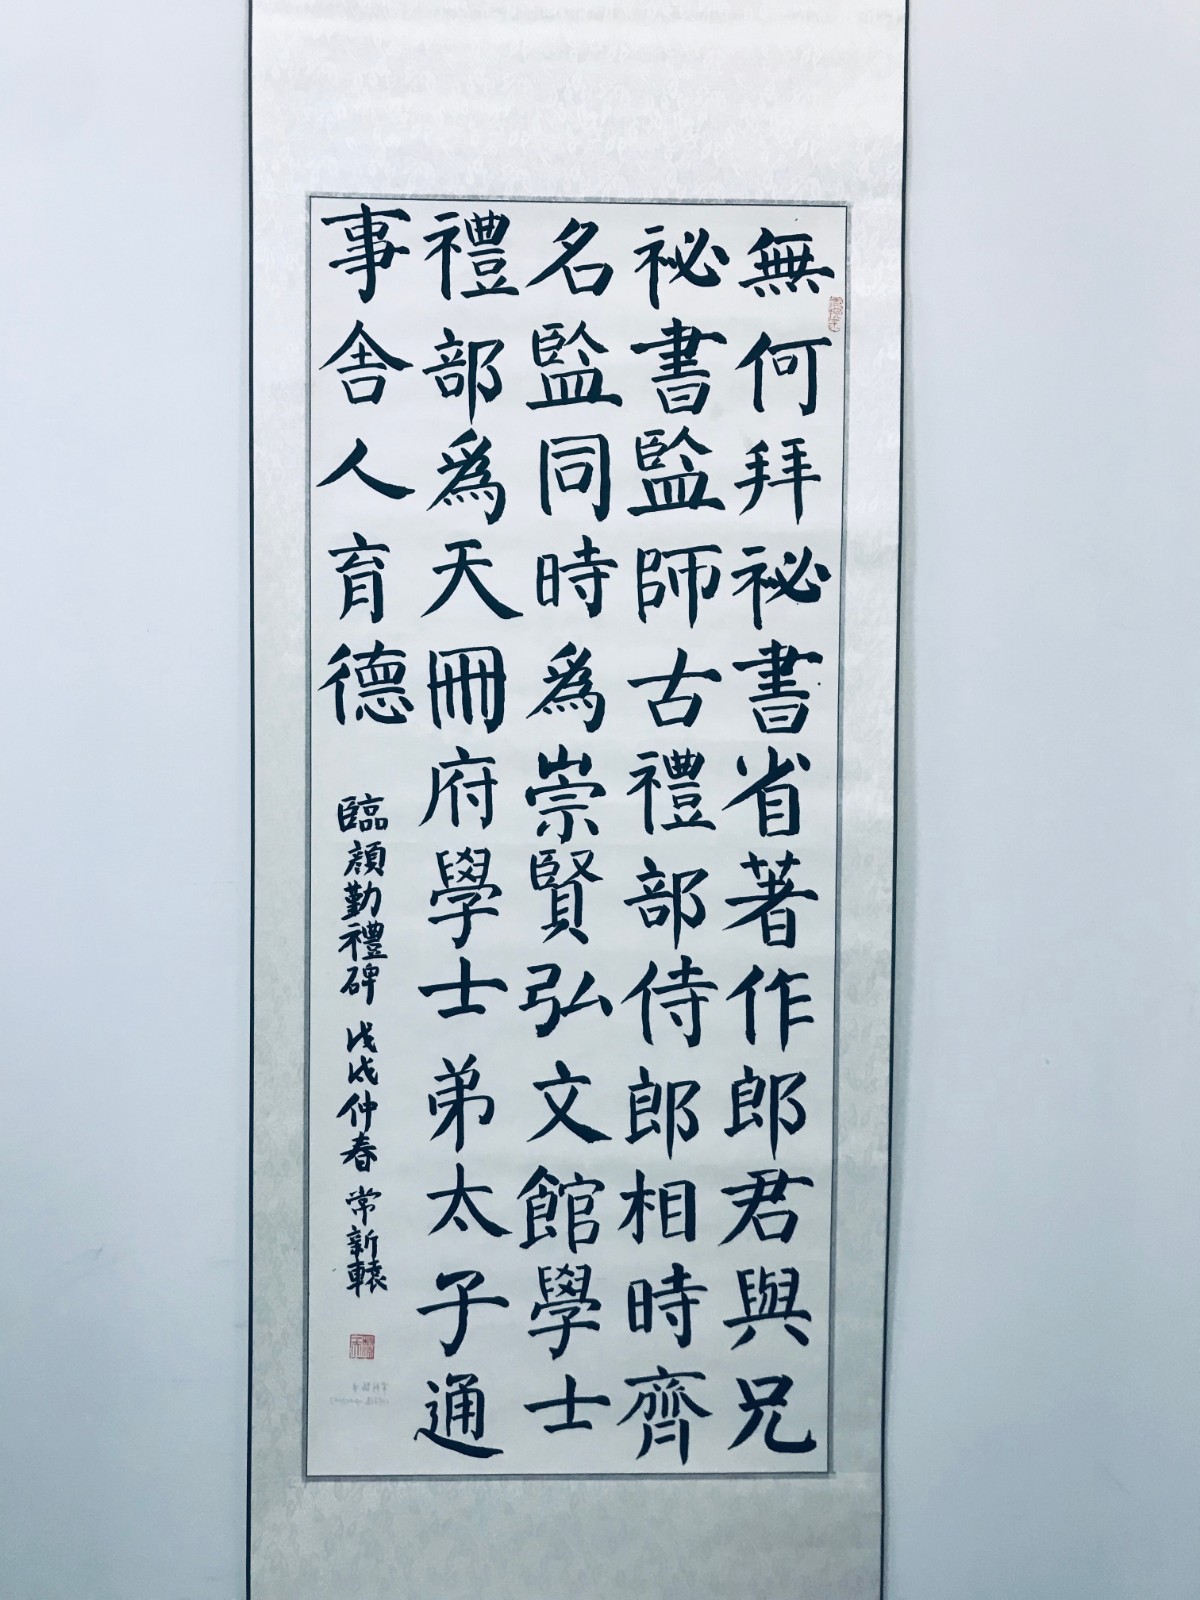 無何拜祕書省著作郎君與兄
祕書監師古禮部侍郎相時齊
名監同時為崇賢弘文館學士
禮部為天冊府學士弟太子通
事舍人育德
臨顏勤禮碑 戊戌仲春 常新轅